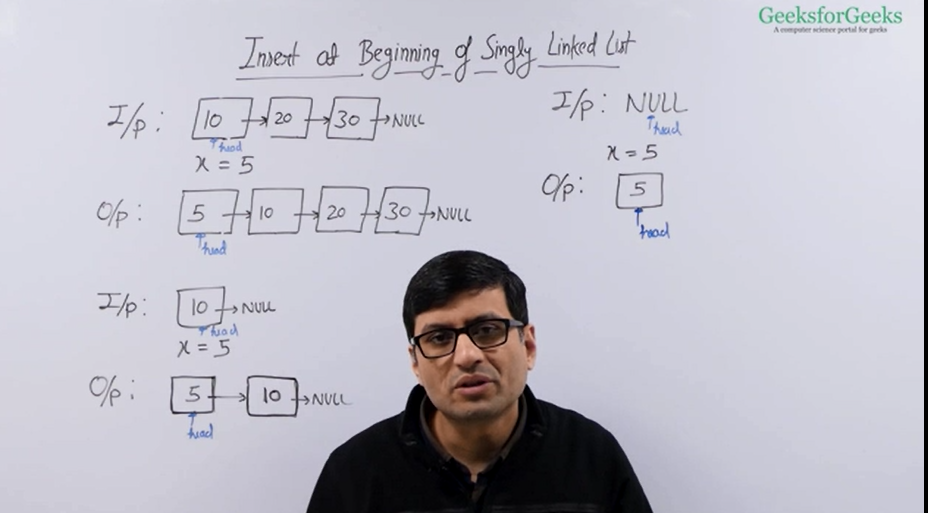 GeeksforGeeks
A computer science portal for geeks
Insert at Beginning of Singly Linked List
I/p: 10 → 20 → 30 → NULL
head
x = 5
O/p: 5 → 10 → 20 → 30 → NULL
head
I/p: 10 → NULL
head
x = 5
O/p: 5 → 10 → NULL
head
I/p: NULL
head
x = 5
O/p: 5
head